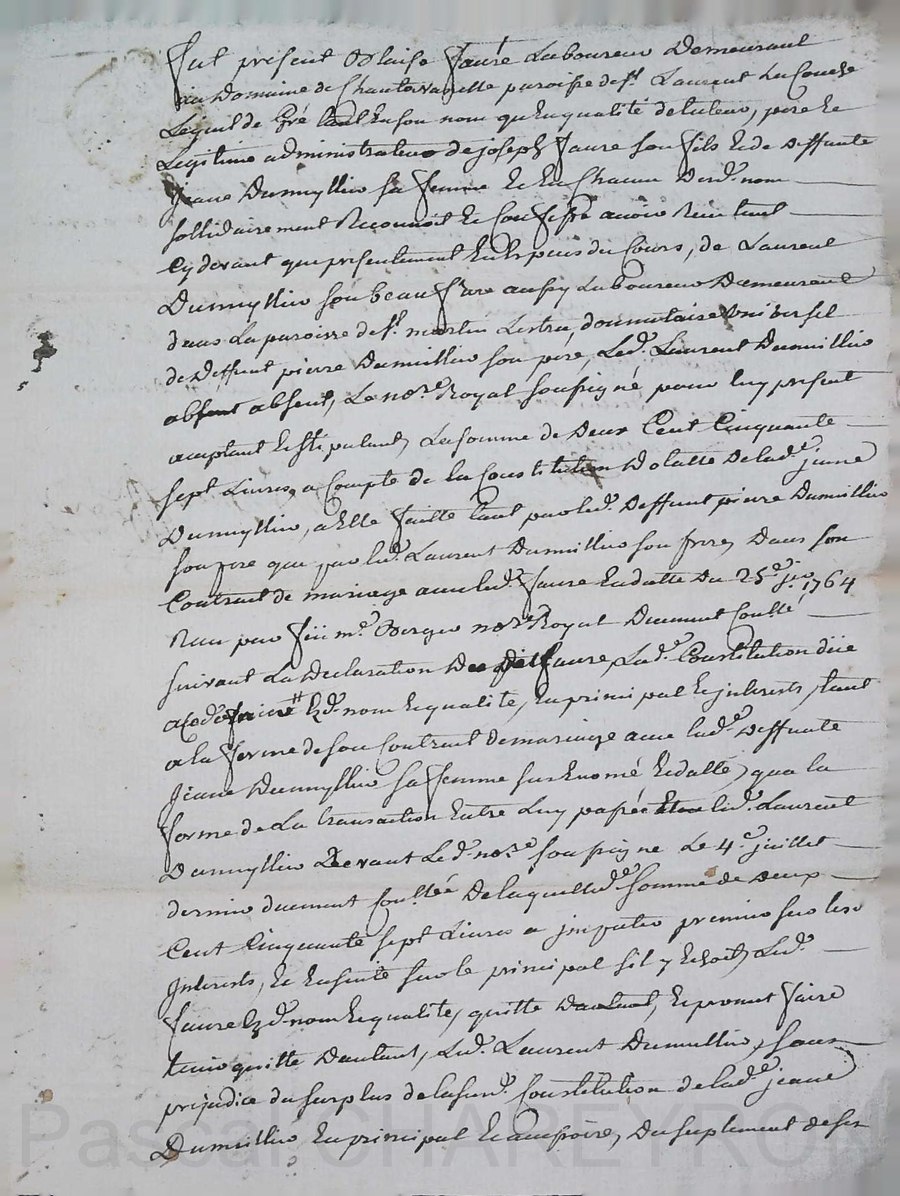 fut présent Blaise faure Laboureur Demeurant
au Domaine de Chantovanette paroisse de st. Laurent La Couche
Lequel de Gré tant En son nom qu'En qualité de tuteur, pere Et
Legitime administrateur de joseph faure son fils Et de Deffunte
jeane Dumyllier sa femme Et En Chacun Desd. nom
sollidairement Reconnoit Et Confesse avoir Reçu tant
Cy devant que présentement En Especes du Cours, de Laurent
Dumyllier son beau frere aussy Laboureur Demeurant
dans La paroisse de st. martin Lestra, donnataire universel
de Deffunt pierre Dumillier son pere, Led. Laurent Dumillier
absent, Le nore. Royal soussigné pour luy présent
acceptant Et stipulant, La somme de Deux Cent Cinquante
sept Livres, a Compte de la Constitution Dotalle De lad. jeane
Dumyllier, a Elle faitte tant par led. Deffunt pierre Dumillier
son pere que par led. Laurent Dumillier son frere, Dans son
Contract de mariage avec led. faure En datte Du 25e. 1764
Reçu par feü me. Berger nore. Royal Duement Con.llé,
suivant La Declaration Du dit faure, La d. Constitution düe
aud. faure Esd. nom Et qualité, En principal Et interests, tant
a la forme de son Contract de mariage avec lad. Deffunte
Jeane Dumyllier sa femme sus Enomé Et datté, qua la
forme de La transaction Entre Luy passée Et led. Laurent
Dumyllier Devant Led. nore. soussigné Le 4e. juillet
dernier duement Con.llée De laquelle d. somme de Deux
Cent Cinquante sept Livres a jmputer premier sur les
Interests, Et Ensuite sur le principal sil y Echoit, Led.
faure Esd. nom Et qualité, quitte Dautant, Et promet faire
tenir quitte Dautant, Led. Laurent Dumillier, sans
préjudice du surplus de la susd. Constitution de lad. jeane
Dumillier En principal Et accessoire, Du suplement de ses
Pascal CHAREYRON